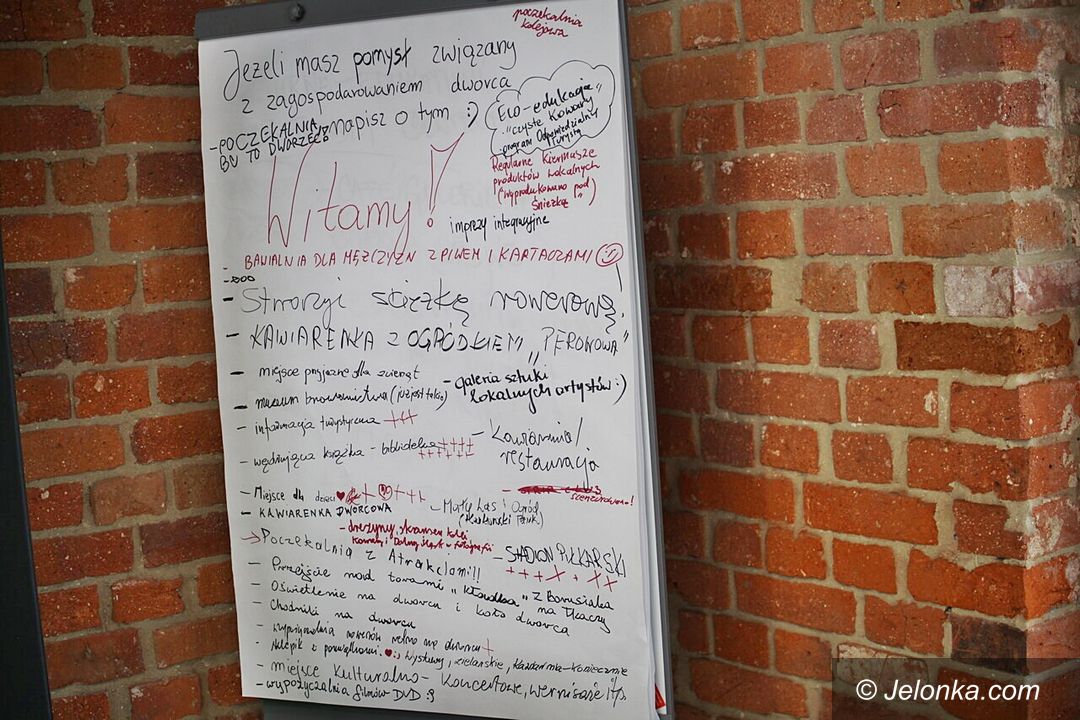 poczekalnia
kolejowa
Jeżeli masz pomysł związany
z zagospodarowaniem dworca
napisz o tym :)
- POCZEKALNIA,
BU TO DWORZEC!
Eko-edukacja
"czyste Kowary"
program Odpowiedzialny
Turysta
Witamy!
Regularne Kiermasze
produktów lokalnych
(wyprodukowano pod
Śnieżką)
imprzy integracyjne
- BAWIALNIA DLA MĘŻCZYZN Z PIWEM I KARTACZAMI :)
- ZOO
- Stworzyć ścieżkę rowerową
- KAWIARENKA Z OGRÓDKIEM „PERONOWA"
- miejsce przyjazne dla zwierząt
- galeria sztuki
lokalnych artystów :)
- muzeum browarnictwa (już jest takie)
- informacja turystyczna +++
- wędrująca książka - biblioteka ++++
+++++
- Kawiarnia/
restauracja
- Miejsce dla dzieci ♥ + + + +
scenzurowano!
- KAWIARENKA DWORCOWA
- Mały Las i Ogród
- drezyny, skansen kolei
Kowary i Dolny Śląsk w fotografii
→ Poczekalnia z Atrakcjami!!
- STADION PIŁKARSKI
+ + + X + X X
- Przejście nad torami „kładka" z Borusiaka
na Tkaczy
- Oświetlenie na dworcu i koło dworca
- Chodniki na dworcu
- wypożyczalnia rowerów wolno na dworcu +
- Sklepik z pamiątkami ♥:, Wystawy, zielarskie, Kawiarnia - koniecznie
- miejsce Kulturalno - Koncertowe, wernisaże itp.
- wypożyczalnia filmów DVD :)
© Jelonka.com